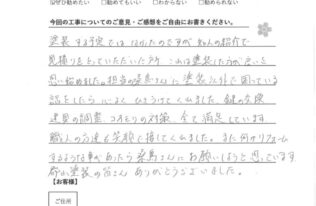 □ぜひ勧めたい □勧めてもいい □わからない □勧めない
今回の工事についてのご意見・ご感想をご自由にお書きください。
塗装する予定ではなかったのですが知人の紹介で
見積りをとっていただいた所 これは塗装した方が良いと
思い始めました。担当の桑島さんに塗装以外で困っている
話をしたら心よくひきうけてくれました。鍵の交換
建具の調整 コオモリの対策、全て満足しています
職人の方達も笑顔に接してくれました。また何かリフォーム
するような事があったら桑島さんにお願いしようと思っています
郡山塗装の皆さん ありがとうございました。
【お客様】
ご住所